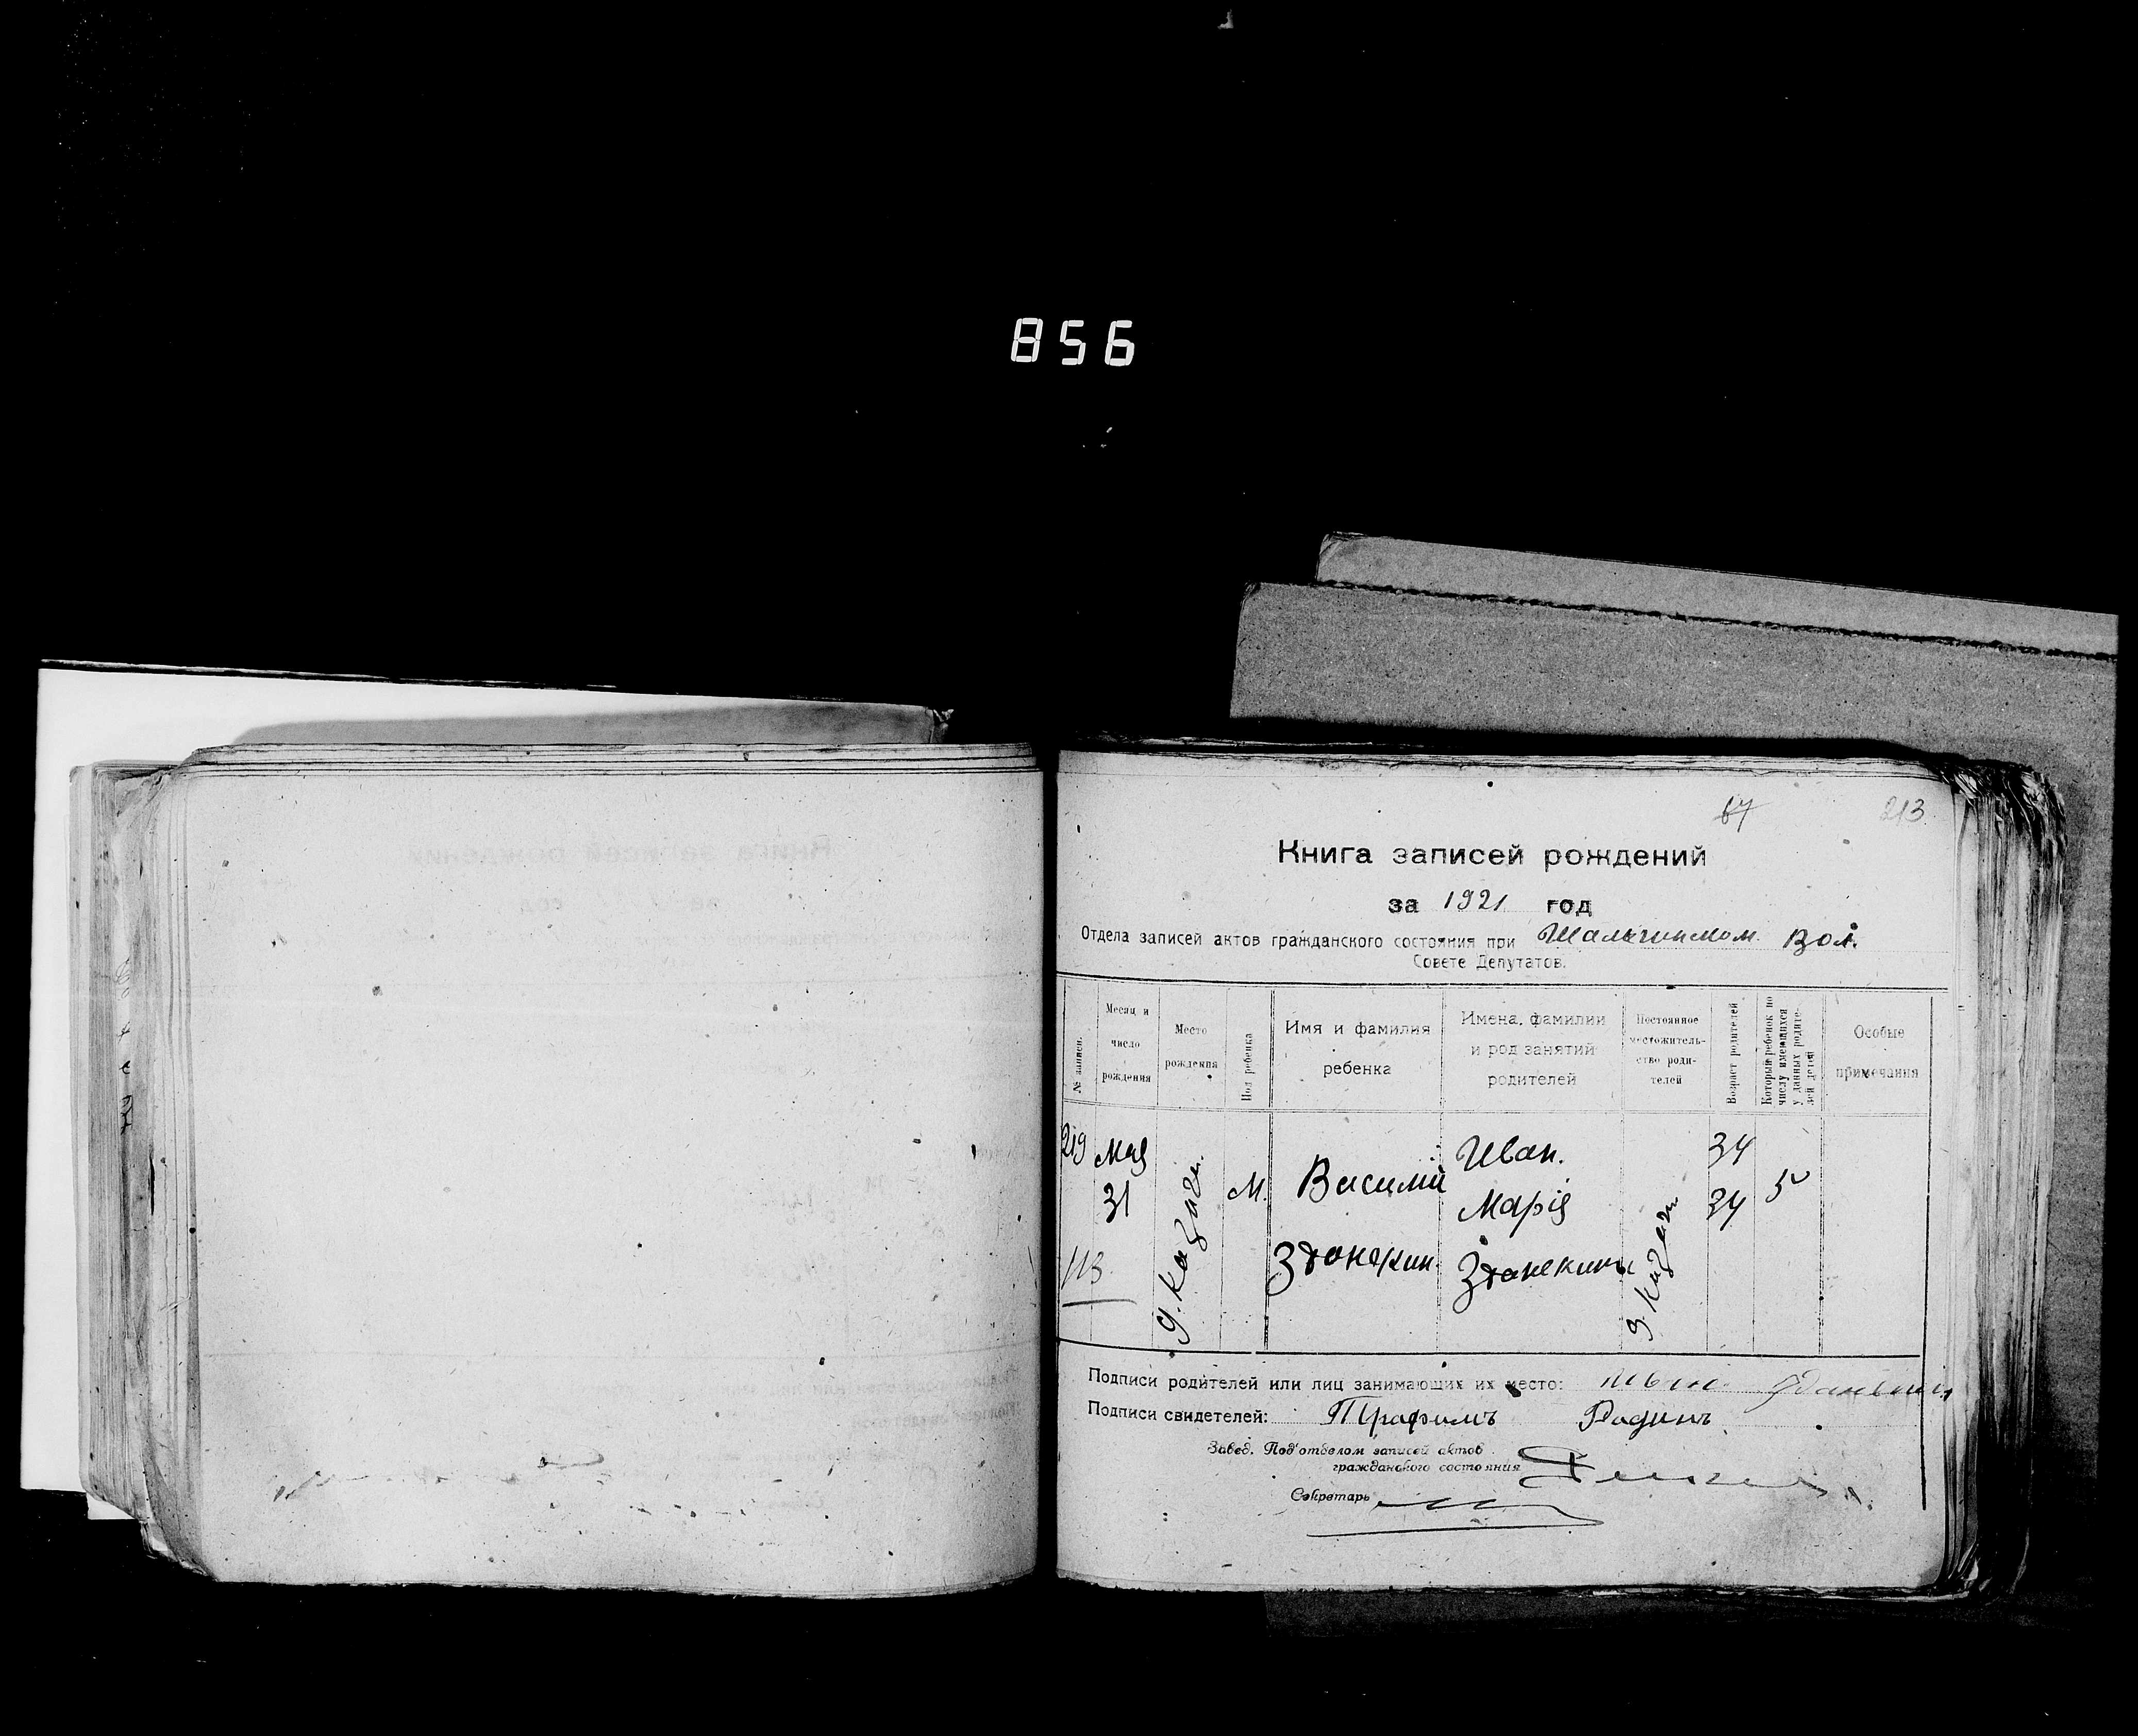 856
67 213
Книга записей рождений
за 1921 год
Отдела записей актов гражданского состояния при Вол.
Совете Депутатов.
№ записи.
Месяц и число рождения
Место рождения
Пол ребенка
Имя и фамилия ребенка
Имена, фамилии и род занятий родителей
Постоянное местожительство родителей
Возраст родителей
Который ребенок по числу имеющихся у данных родителей детей
Особые примечания
219 Мая Иван. 34
31 М. Василий Марія 34 5
113
Подписи родителей или лиц занимающих их место:
Подписи свидетелей: Трафимъ Радинъ
Завед. Под'отделом записей актов
гражданского состояния
Секретарь